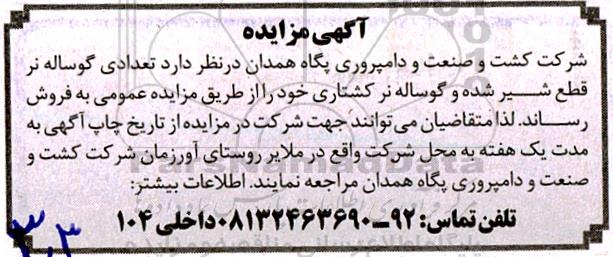 آگهی مزایده
شرکت کشت و صنعت و دامپروری پگاه همدان درنظر دارد تعدادی گوساله نر
قطع شیر شده و گوساله نر کشتاری خود را از طریق مزایده عمومی به فروش
رساند. لذا متقاضیان می‌توانند جهت شرکت در مزایده از تاریخ چاپ آگهی به
مدت یک هفته به محل شرکت واقع در ملایر روستای آورزمان شرکت کشت و
صنعت و دامپروری پگاه همدان مراجعه نمایند. اطلاعات بیشتر:
تلفن تماس: ۹۲ــ۰۸۱۳۲۴۶۳۶۹۰داخلی ۱۰۴
۳,۳